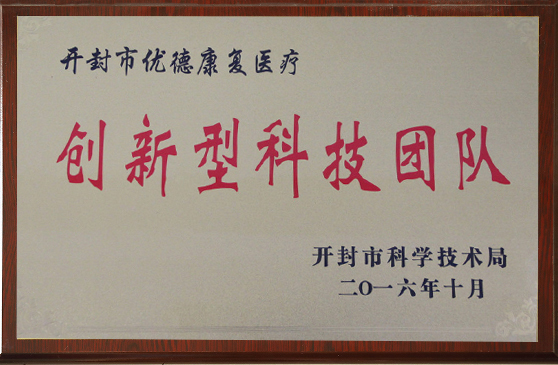 开封市优德康复医疗
创新型科技团队
开封市科学技术局
二〇一六年十月